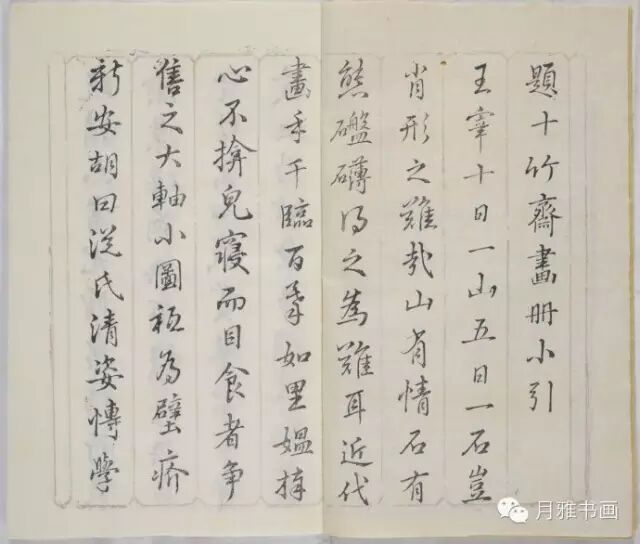 題十竹齋畫冊小引
王宰十日一山五日一石豈
肖形之難哉山有情石有
態礴得之為難耳近代
畫手千臨百摹如里媼捧
心不揜皃寢而目食者爭
售之大軸小圖祗為壁疥
新安胡曰從氏清姿慱學
月雅书画